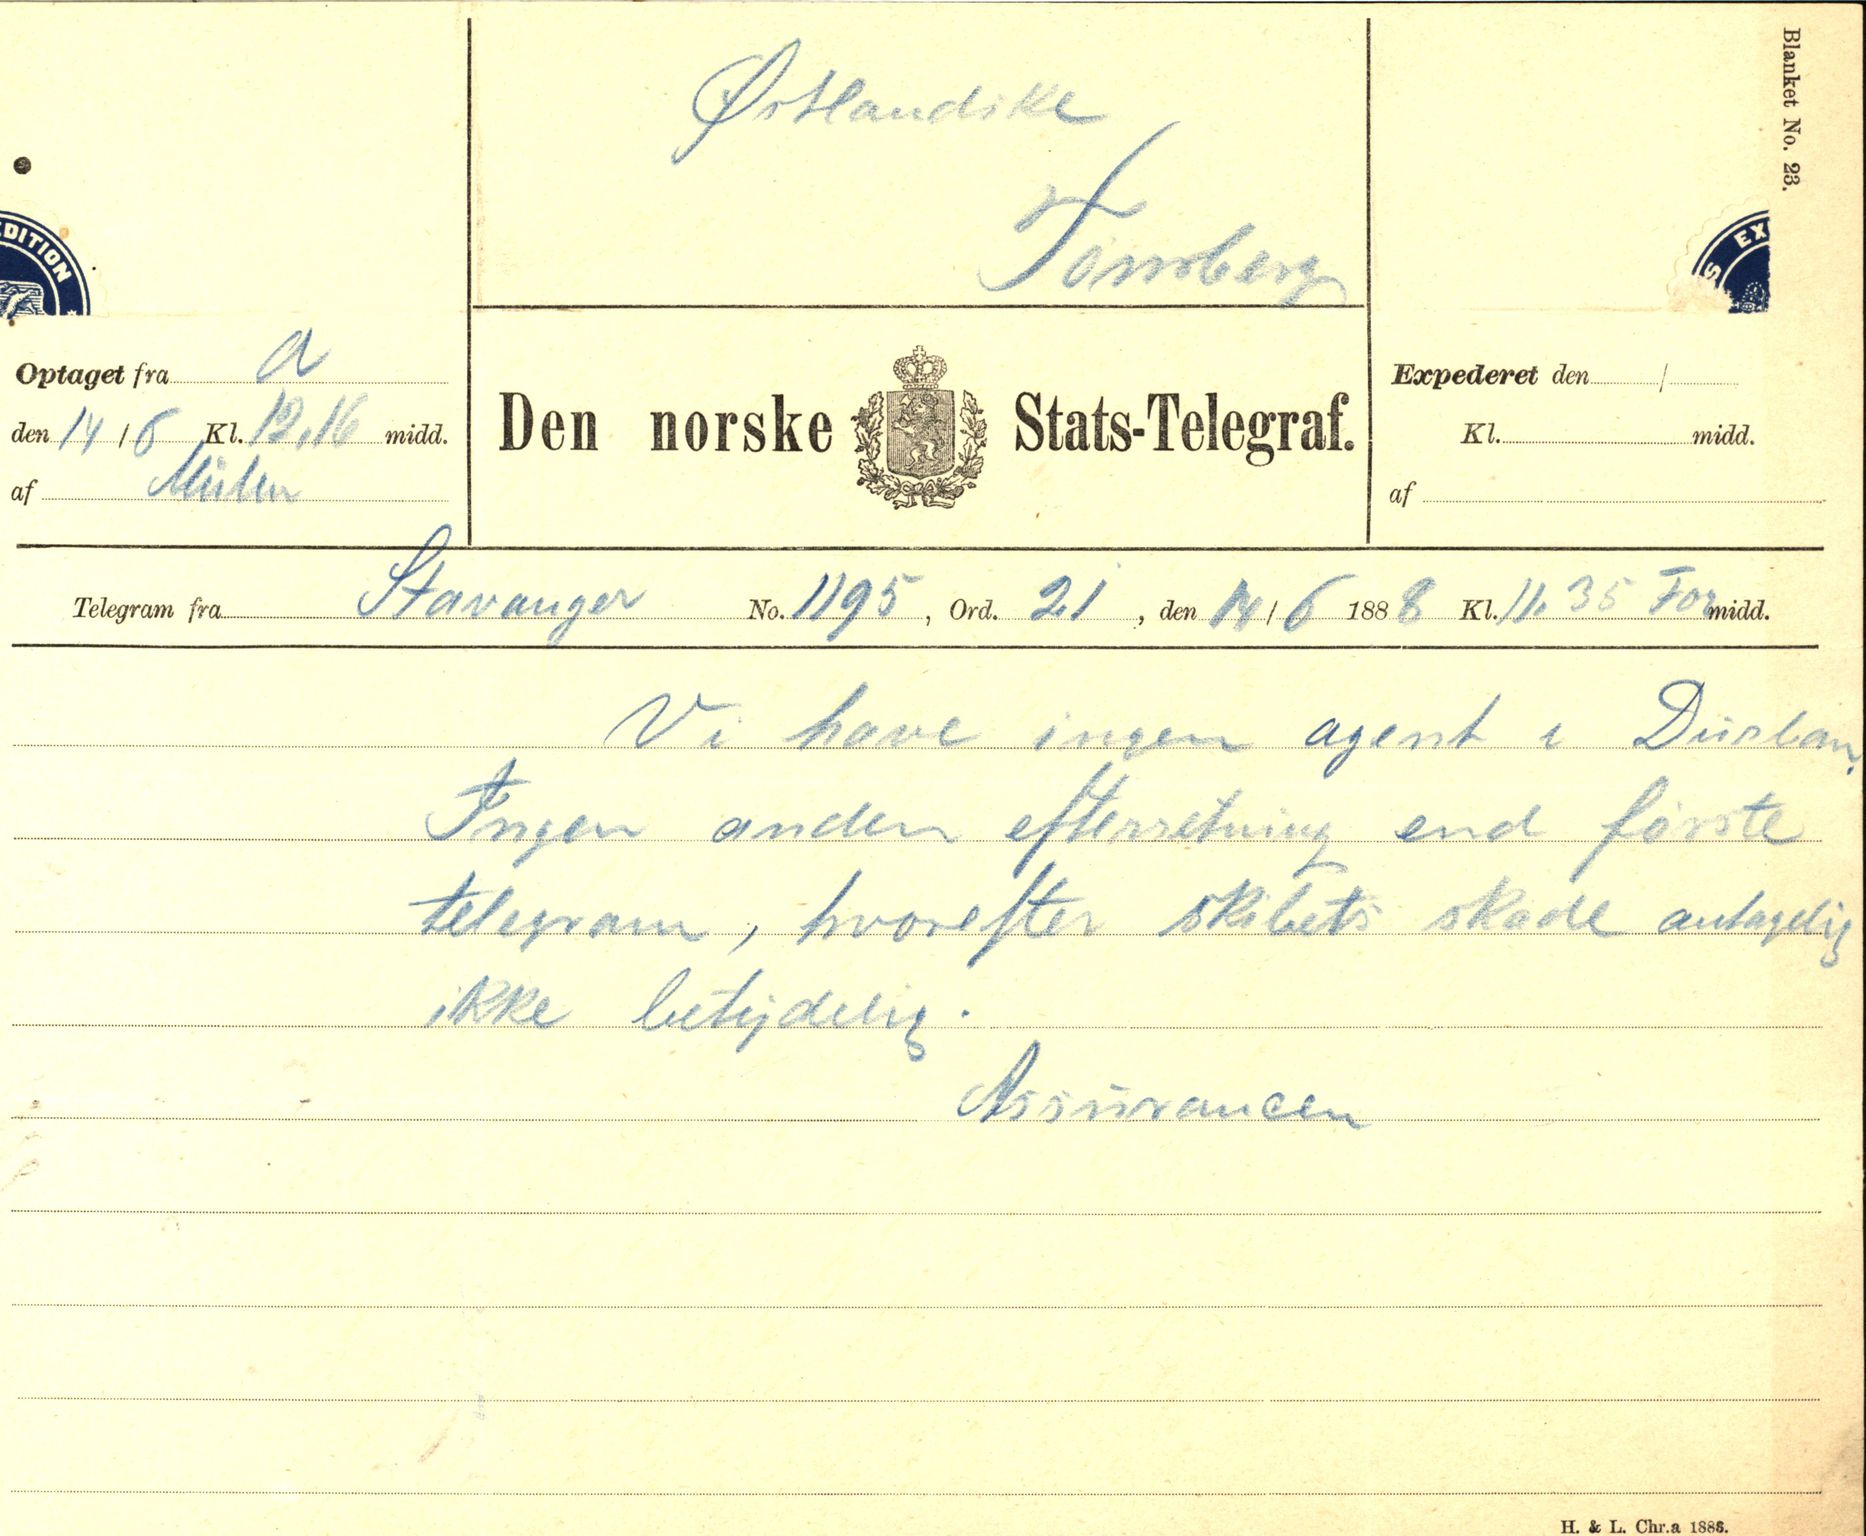 Blanket No. 23.
Østlandske
Tönsberg
EDITION
S EX
Optaget fra a
den 14/6 Kl. 12,16 midd.
af
Den norske Stats-Telegraf.
Expederet den /
Kl. midd.
af
Telegram fra Stavanger No. 1195, Ord. 21, den 14/6 1888 Kl. 11.35 For midd.
Vi have ingen agent i Durban.
Ingen anden efterretning end første
telegram, hvorefter skibets skade antagelig
ikke betydelig.
Assurancen
H. & L. Chr.a 1888.